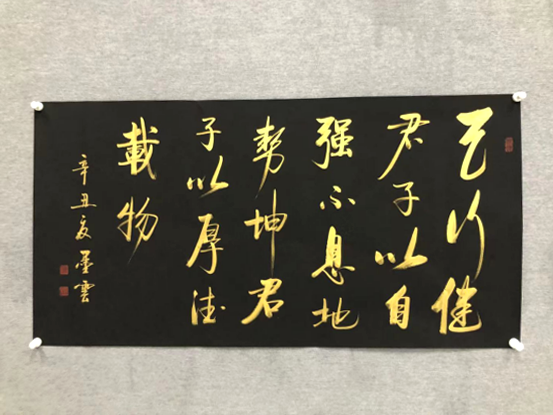 天行健
君子以自
强不息地
势坤君
子以厚德
載物
辛丑夏墨雲